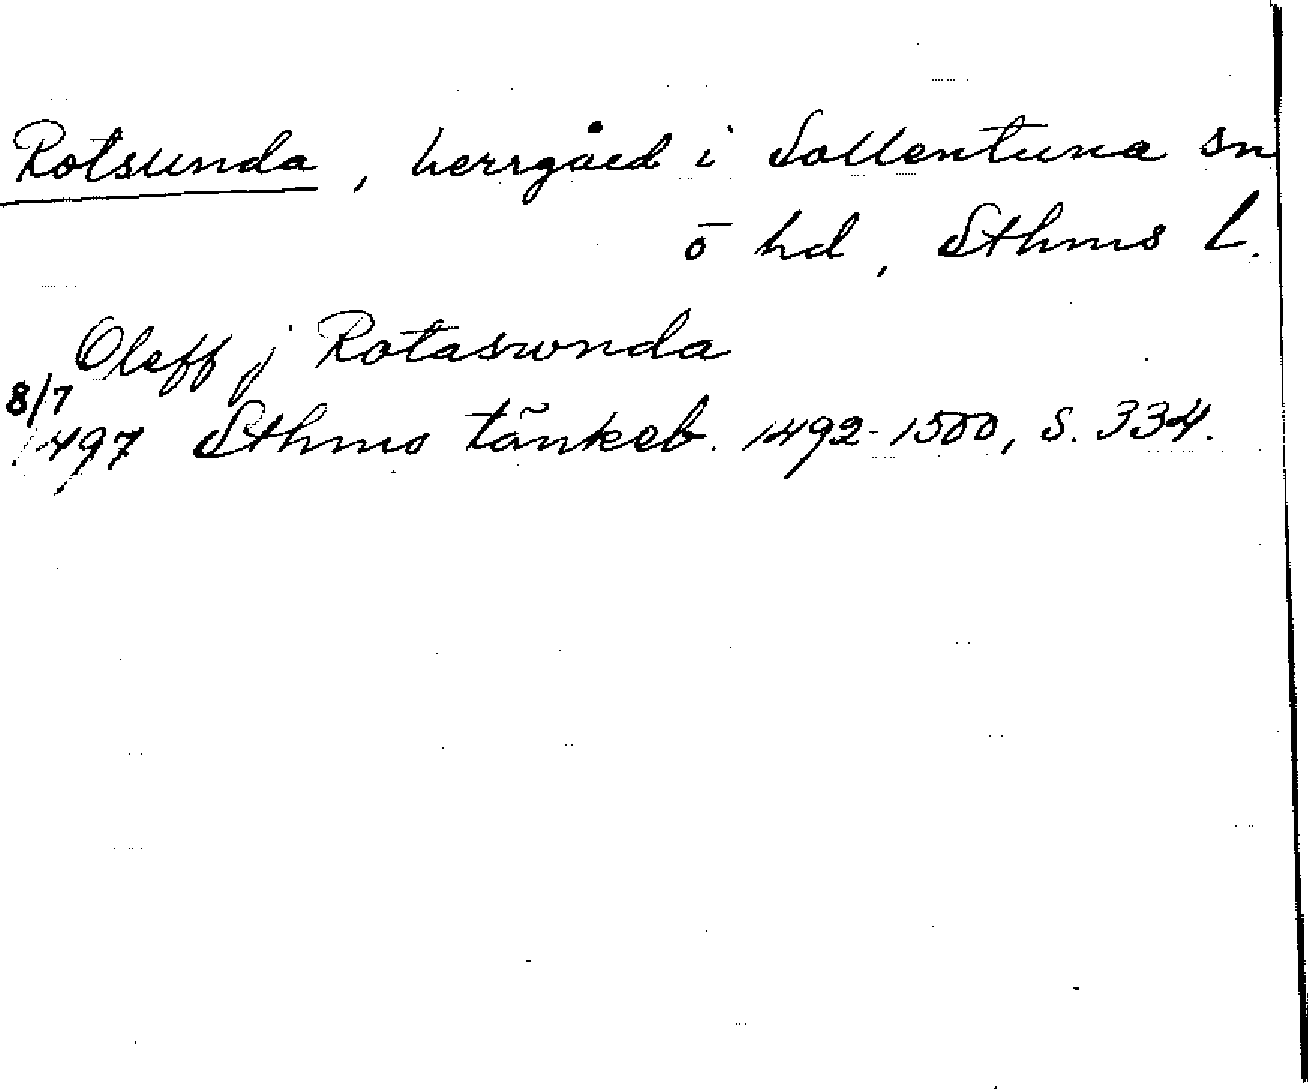 Rotsunda, herrgård i Sollentuna sn
o hd, Sthms l.
Oleff j Rotasunda
8/7
1497 Sthms tänkeb. 1492-1500, s. 334.